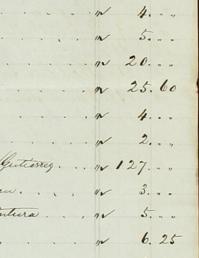 " 4. " "
" 5. " "
" 20. " "
" 25. 60
" 4. " "
" 2. " "
Gutierrez " 127. " "
" 3. " "
" 5. " "
" 6. 25